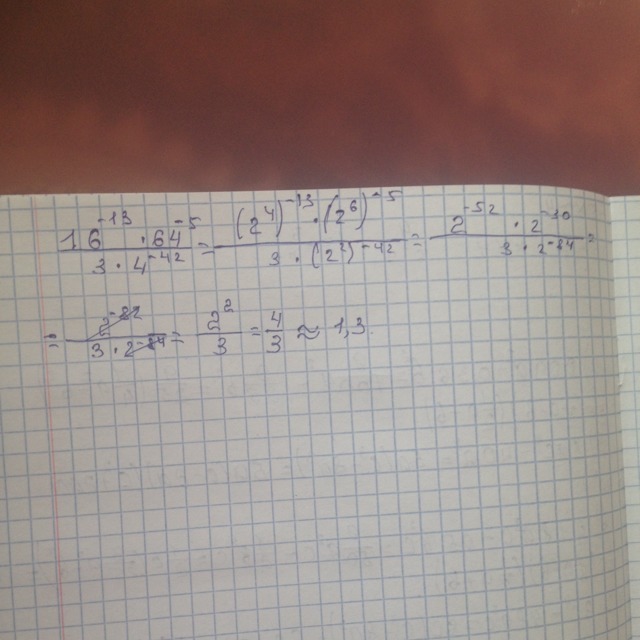 (16^-13 · 64^-5)/(3 · 4^-42) = ((2^4)^-13 · (2^6)^-5)/(3 · (2^2)^-42) = (2^-52 · 2^-30)/(3 · 2^-84) =
= 2^-82/(3 · 2^-84) = 2^2/3 = 4/3 ≈ 1,3.